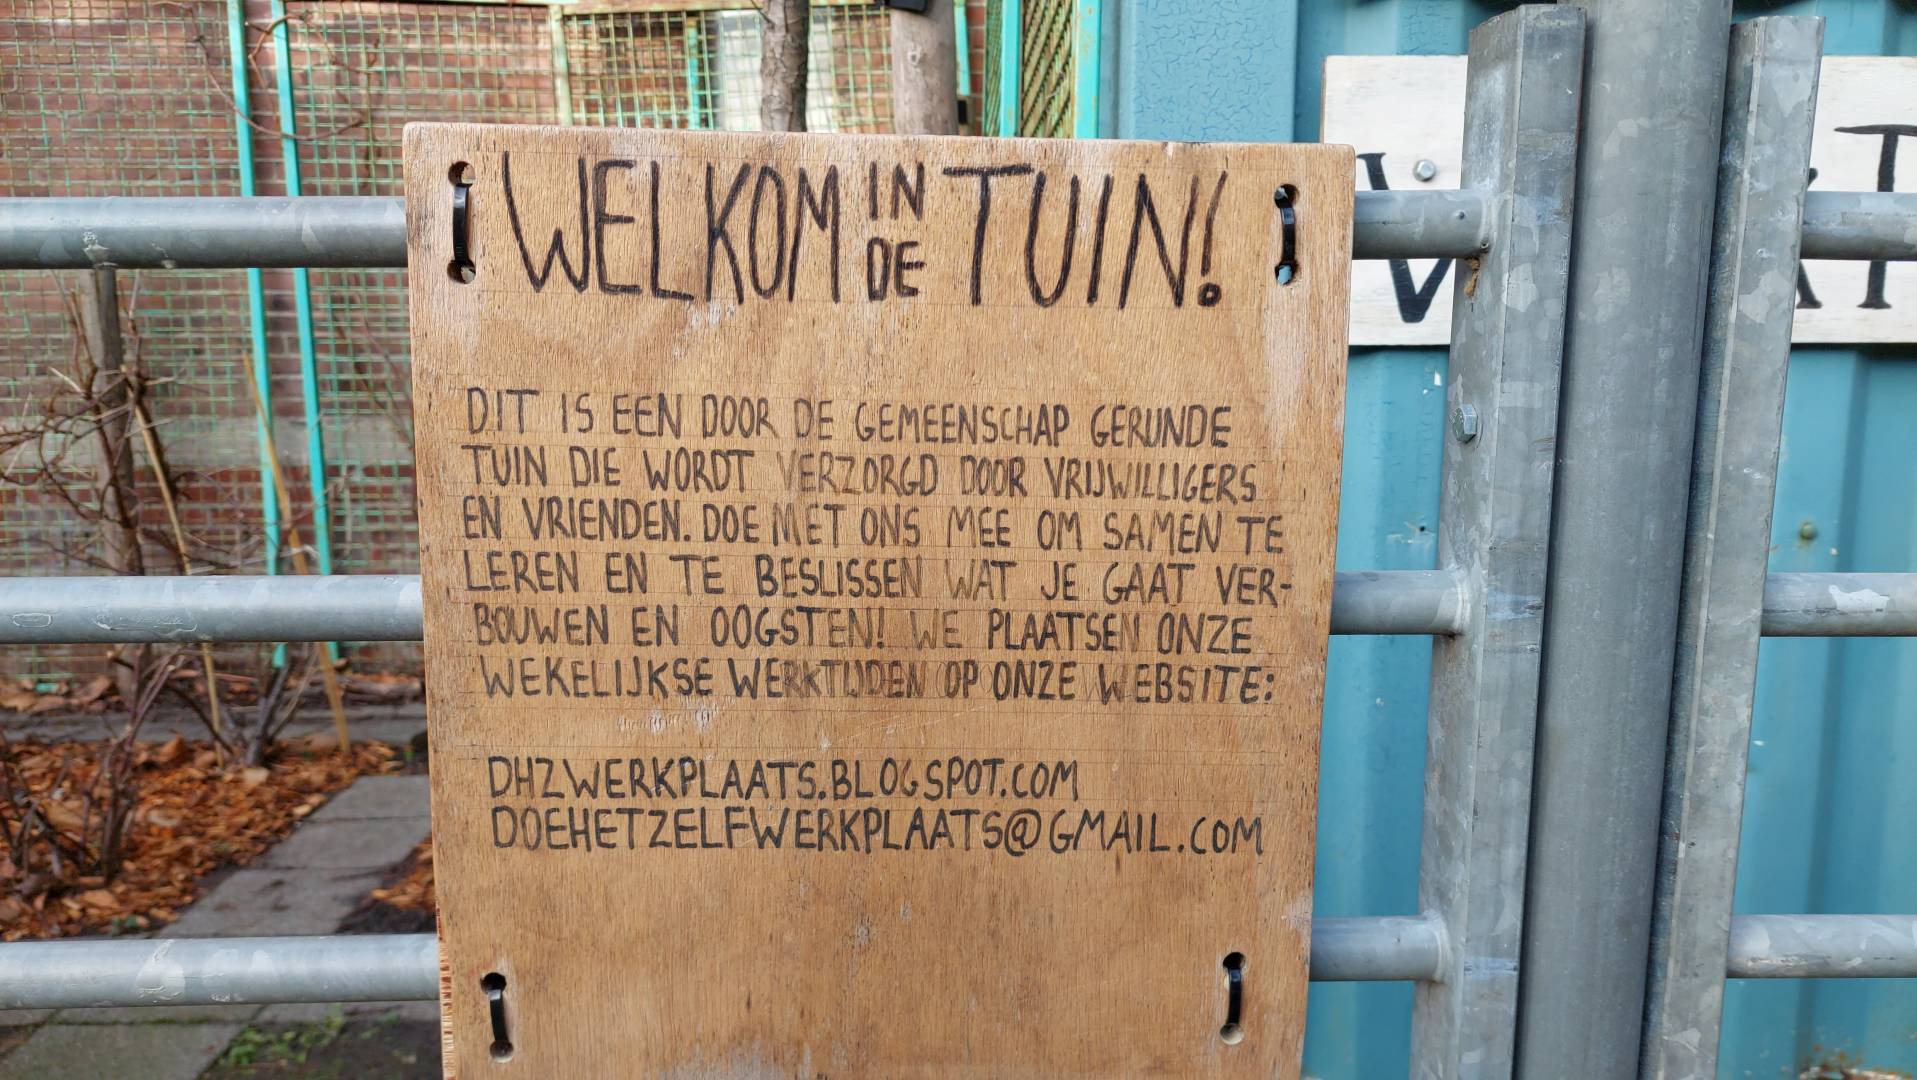 WELKOM IN DE TUIN!
DIT IS EEN DOOR DE GEMEENSCHAP GERUNDE
TUIN DIE WORDT VERZORGD DOOR VRIJWILLIGERS
EN VRIENDEN. DOE MET ONS MEE OM SAMEN TE
LEREN EN TE BESLISSEN WAT JE GAAT VER-
BOUWEN EN OOGSTEN! WE PLAATSEN ONZE
WEKELIJKSE WERKTIJDEN OP ONZE WEBSITE:
DHZWERKPLAATS.BLOGSPOT.COM
DOEHETZELFWERKPLAATS@GMAIL.COM